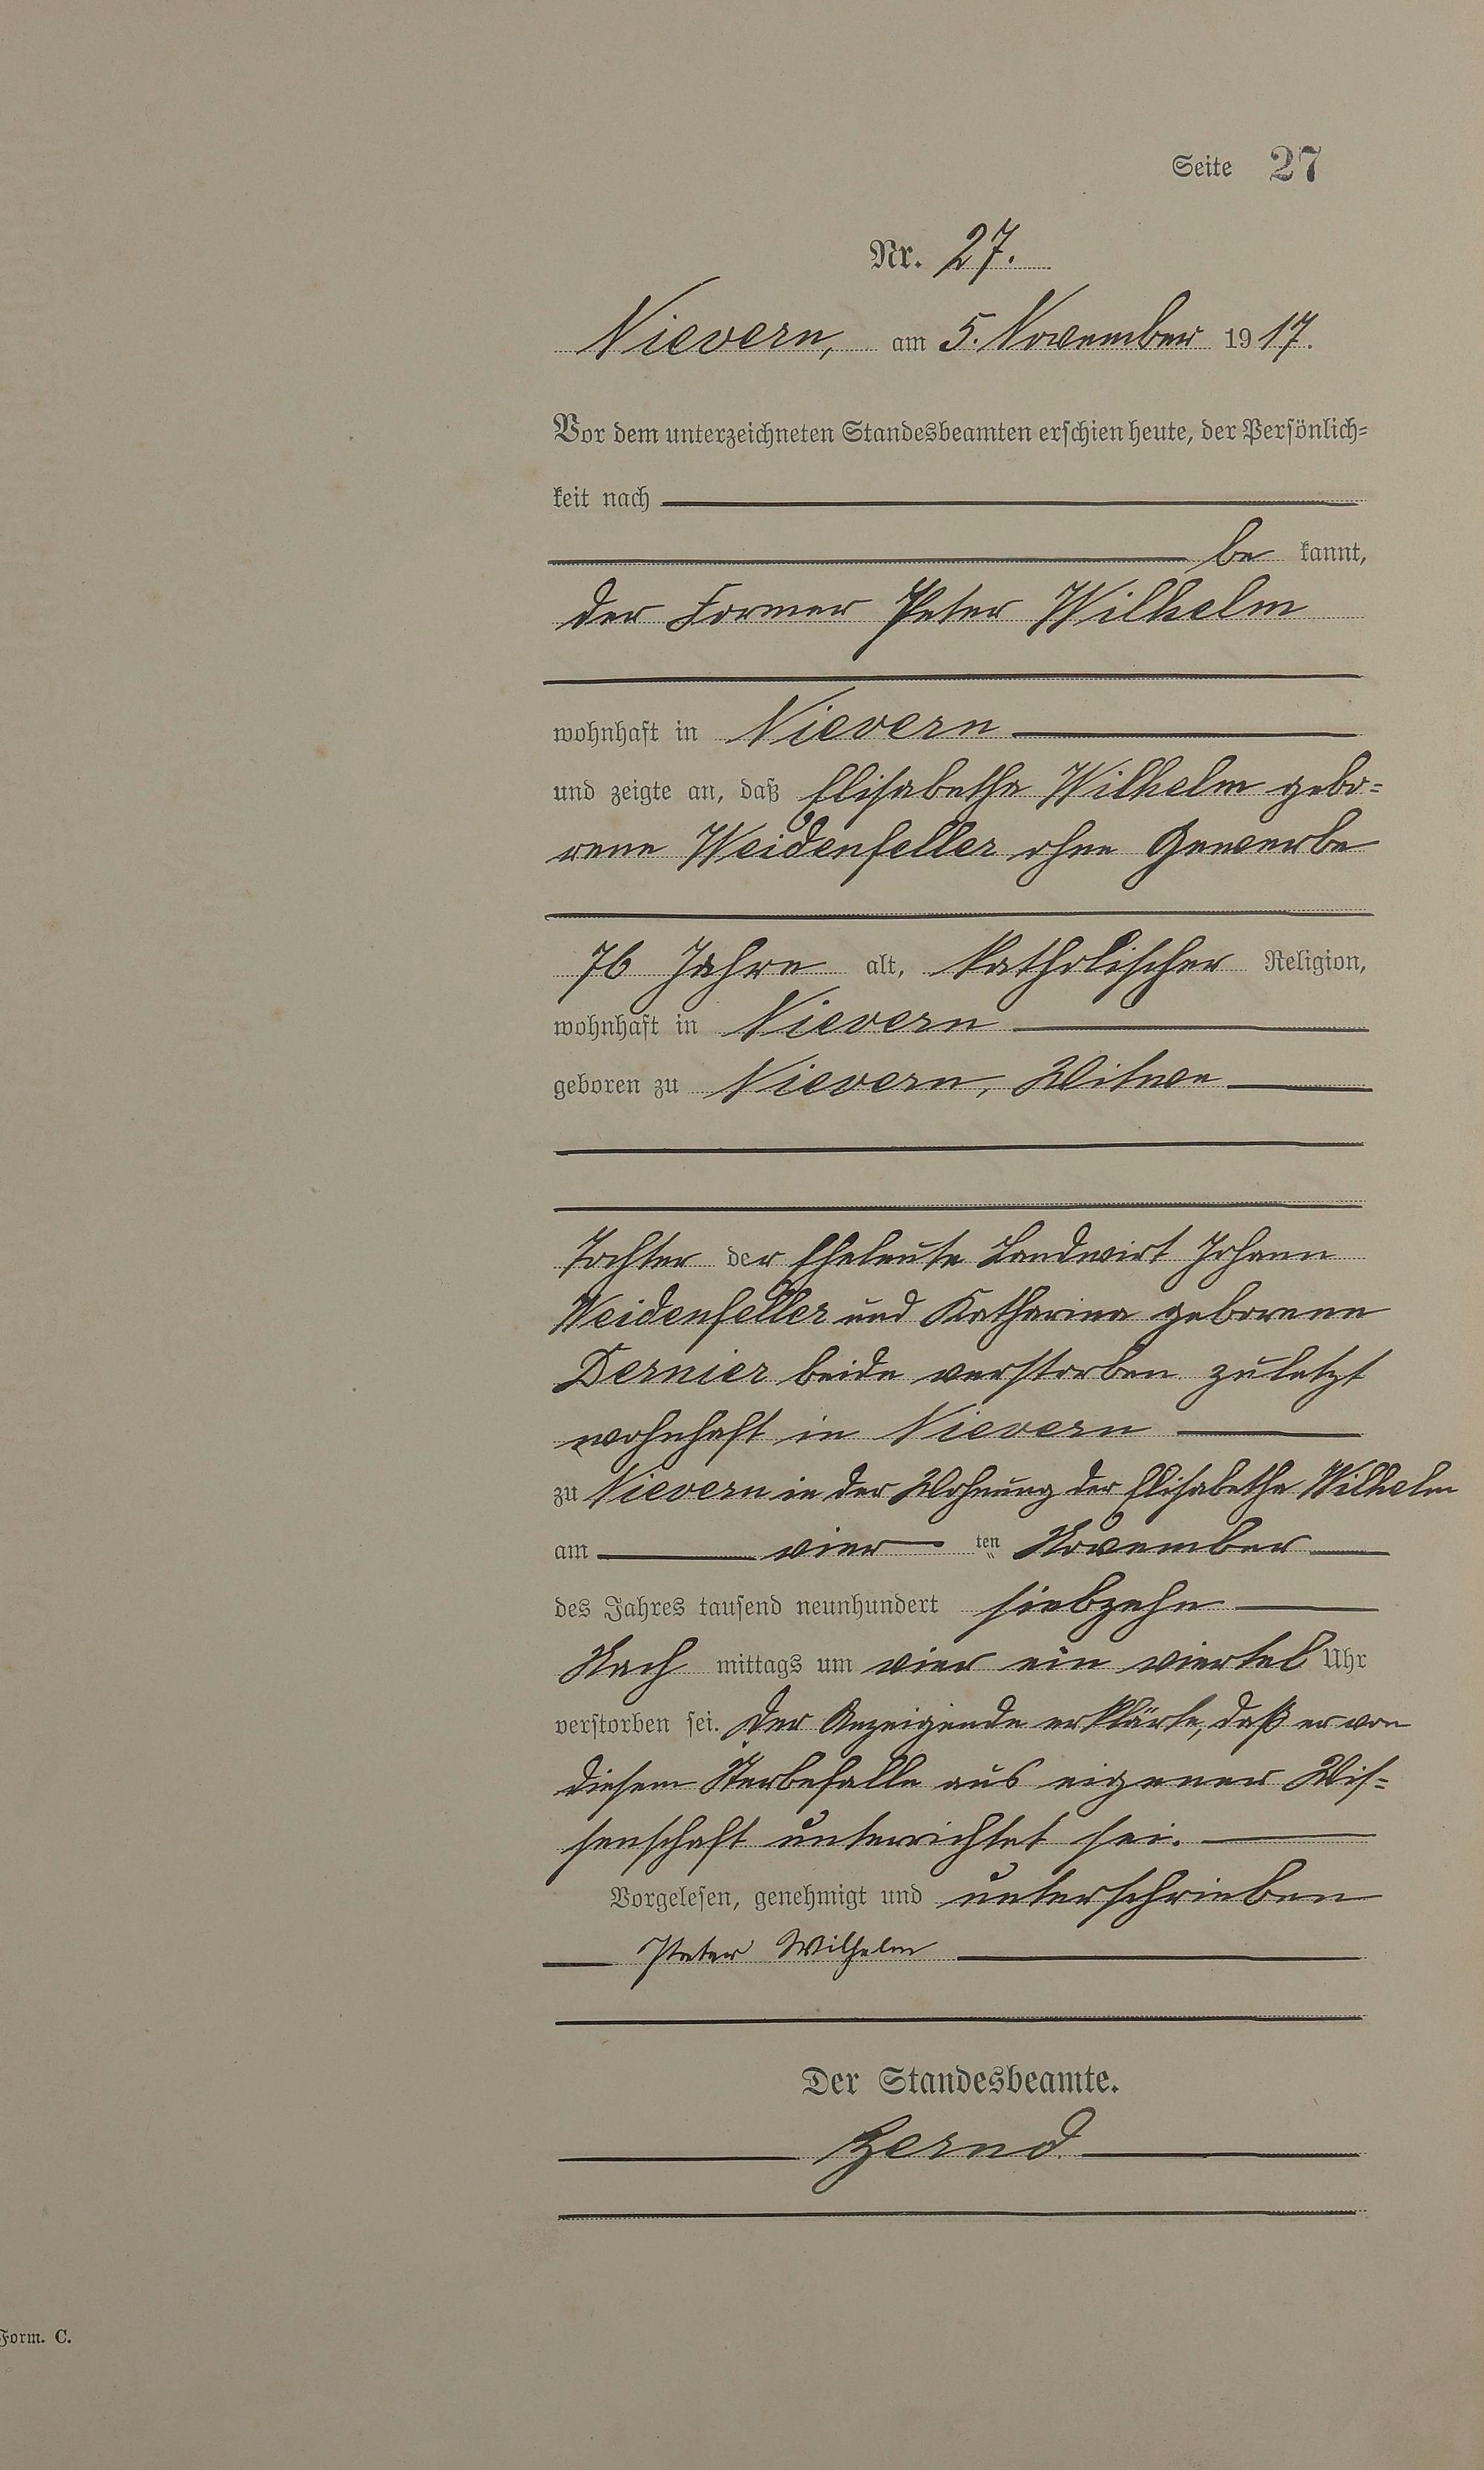 Seite 27
Nr. 27.
Nievern, am 5. November 1917.
Vor dem unterzeichneten Standesbeamten erschien heute, der Persönlich-
keit nach
be kannt,
der Former Peter Wilhelm
wohnhaft in Nievern
und zeigte an, daß Elisabetha Wilhelm gebo-
rene Weidenfeller ohne Gewerbe
76 Jahre alt, katholischer Religion,
wohnhaft in Nievern
geboren zu Nievern, Witwe
Tochter der Eheleute Landwirt Johann
Weidenfeller und Katharina geborene
Dernier beide verstorben zuletzt
wohnhaft in Nievern
zu Nievern in der Wohnung der Elisabetha Wilhelm
am vier ten November
des Jahres tausend neunhundert siebzehn
Nach mittags um vier ein viertel Uhr
verstorben sei. Der Anzeigende erklärte, daß er von
diesem Sterbefalle aus eigener Wis-
senschaft unterrichtet sei.
Vorgelesen, genehmigt und unterschrieben
Peter Wilhelm
Der Standesbeamte.
Form. C.